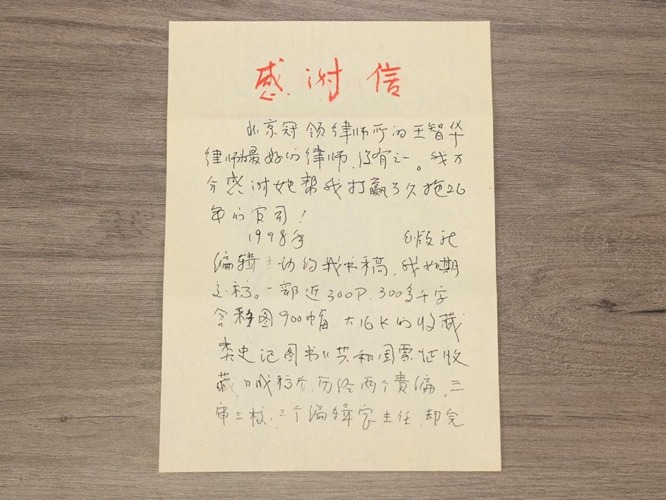 感谢信
北京冠领律师所的王智华
律师是最好的律师,没有之一。我万
分感谢她帮我打赢了久拖26
年的官司!
1998年 出版社
编辑 约我书稿,我如期
交稿。一部近300P,300多千字
含彩图900幅 大16K的收藏
类史记图书《共和国票证收
藏》成稿后,历经两个责编,三
审三校,三个编辑室主任 却完